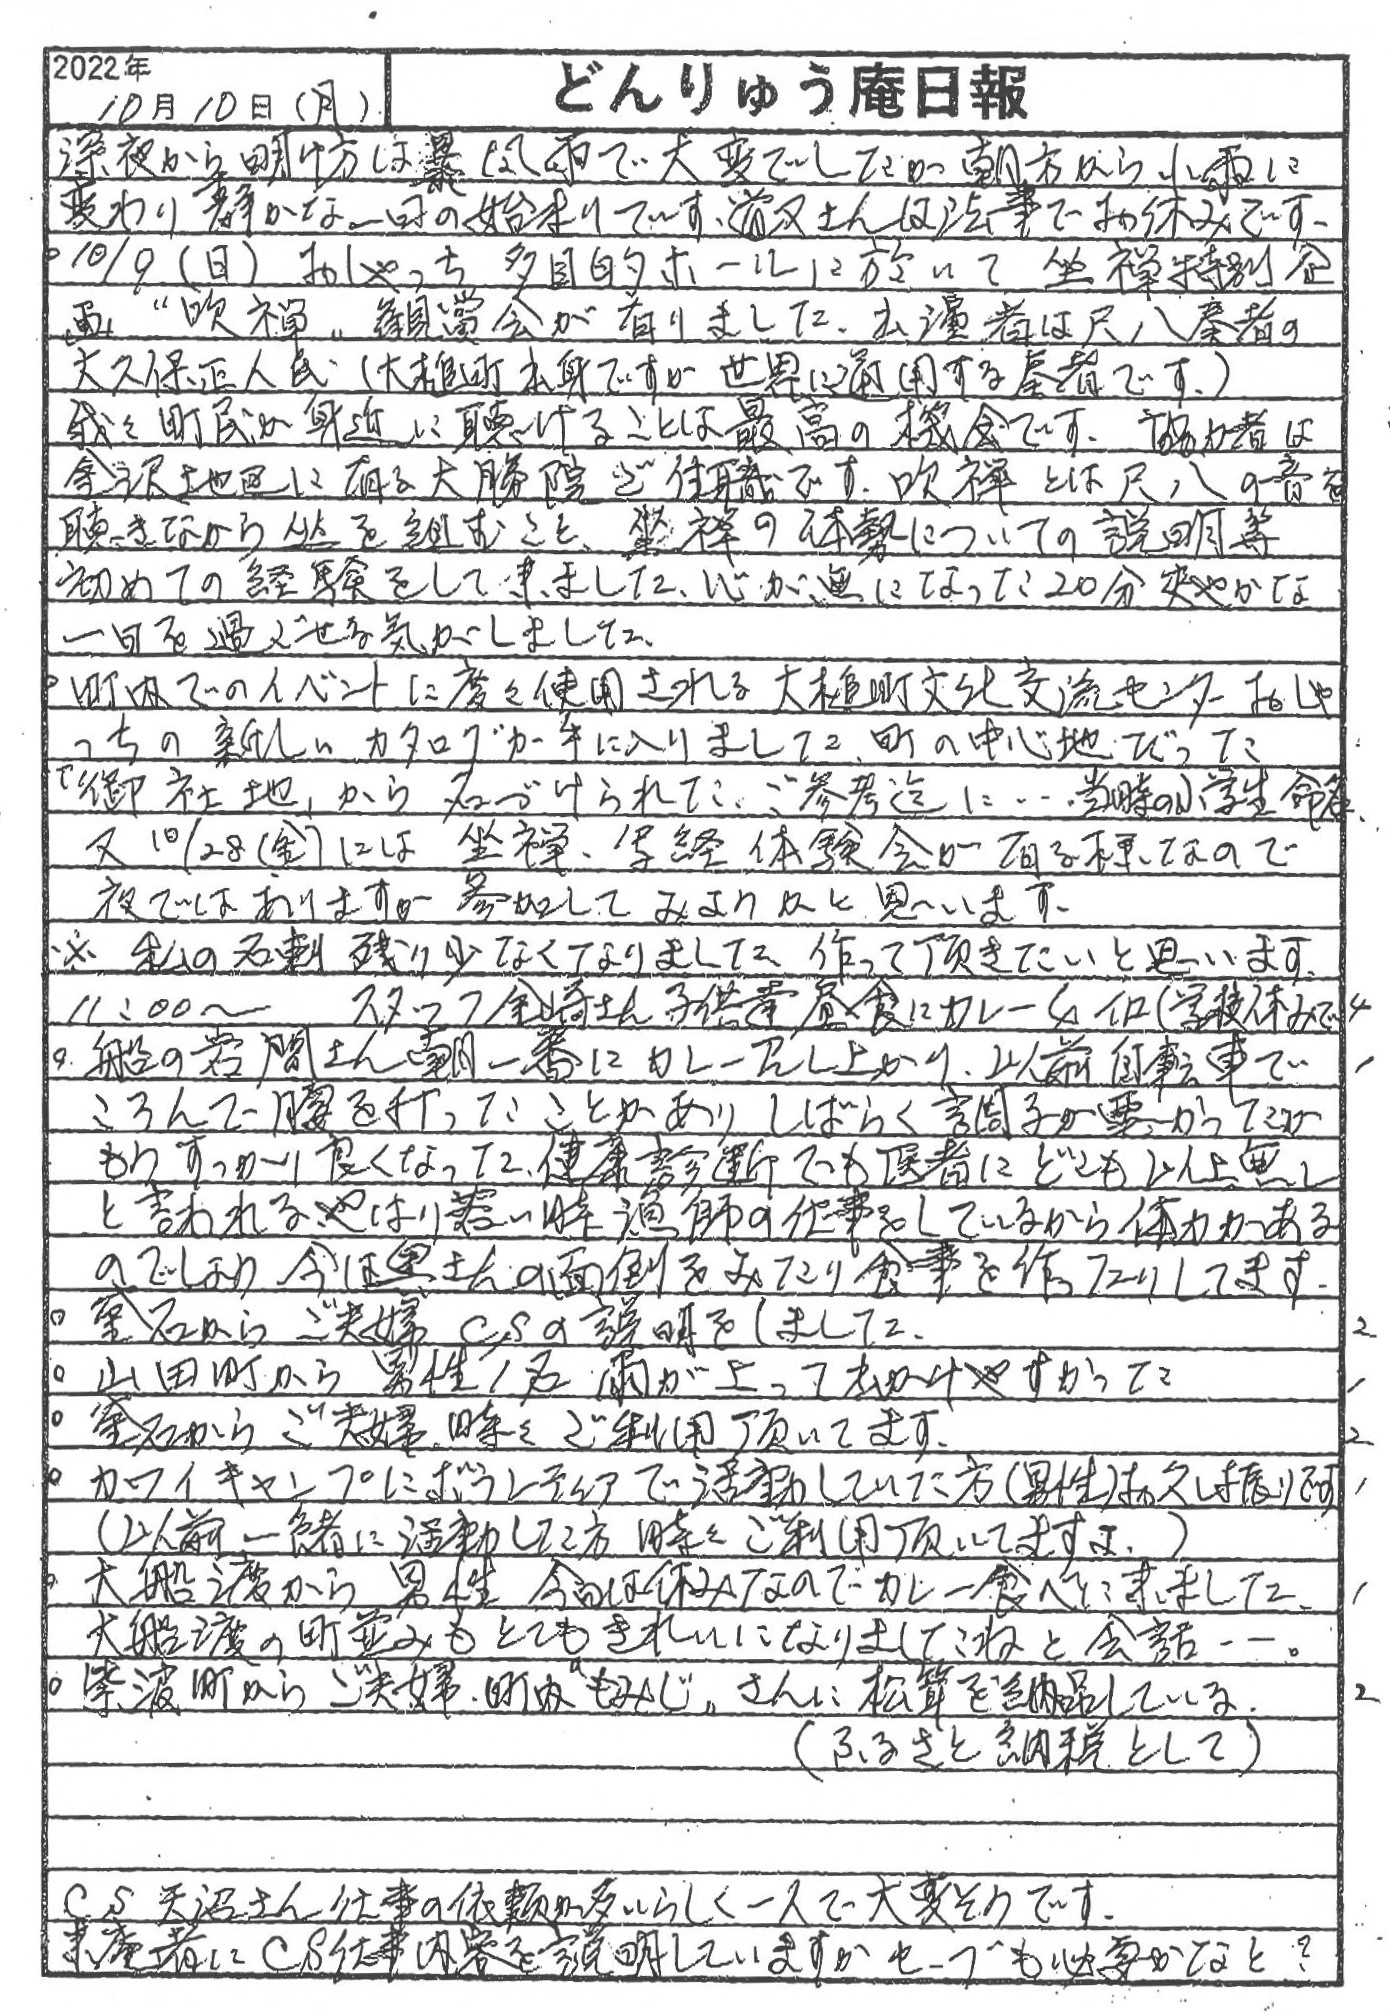 2022年
10月10日(月)
どんりゅう庵日報
深夜から明け方は暴風雨で大変でしたが朝方から小雨に
変わり静かな一日の始まりです、さんは法事でお休みです。
○10/9(日) おしゃっち多目的ホールに於いて 坐禅特別企
画 "吹禅" 観賞会が有りました、出演者は尺八奏者の
大久保正人氏(大槌町出身ですが世界に通用する奏者です。)
我々町民が身近に聴けることは最高の機会です。協力者は
金沢地区に有る大勝院ご住職です。吹禅とは尺八の音を
聴きながら坐を組むこと、坐禅の体勢についての説明等
初めての経験をして来ました、心が無になった20分爽やかな
一日を過ごせる気がしました。
○町内でのイベントに度々使用される大槌町文化交流センターおしゃ
っちの新しいカタログが手に入りました、町の中心地だった
「御社地」から名づけられた、ご参考迄に…当時の小学生命名
又10/28(金)には 坐禅、写経体験会が有る様なので
夜ではありますが参加してみようかと思います。
※ 私の名刺残り少なくなりました、作って頂きたいと思います。
11:00〜 スタッフ金崎さん子供達昼食にカレー4イロ(学校休みで 4
○船の岩間さん朝一番にカレー召し上がり、以前自転車で 1
ころんで腰を打ったことがありしばらく調子が悪かったが
もうすっかり良くなった、健康診断でも医者にどこも以上無し
と言われる、やはり若い時漁師の仕事をしているから体力がある
のでしょう 今は奥さんの面倒をみたり食事を作ったりしてます。
○釜石からご夫婦 CSの説明をしました、 2
○山田町から男性1名 雨が上って出かけやすかった 1
○釜石からご夫婦、時々ご利用頂いてます。 2
○カワイキャンプにボランティアで活動していた方(男性)お久し振りです 1
(以前一緒に活動した方 時々ご利用頂いてますよ。)
○大船渡から男性 今日は休みなのでカレー食べに来ました、 1
大船渡の町並みもとてもきれいになりましたねと会話――。
○紫波町からご夫婦、町内"もみじ"さんに松茸を納品している。 2
(ふるさと納税として)
CS 天沼さん仕事の依頼が多いらしく一人で大変そうです。
来庵者にCS仕事内容を説明していますがセーブも必要かなと?